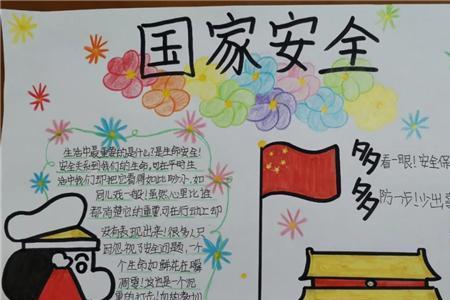 国家安全
生活中最重要的是什么?是生命安全!
安全关系到我们的生命,可在平时生
活中我们却把它看得如此渺小,如
同儿戏一般!虽然心里比谁
都清楚它的重要,可在行动上却
没有表现出来!很多人只
因忽视了安全问题,一个
个生命如鲜花在瞬
凋零!这岂是一个
多多
看一眼!安全保
防一步!少出事